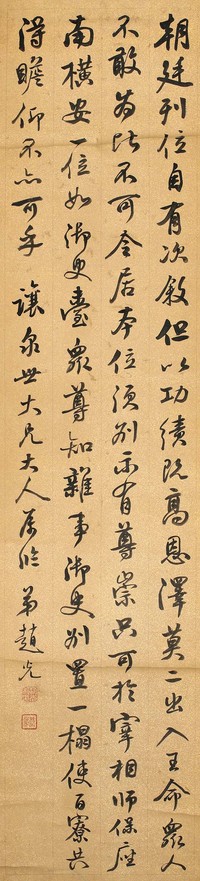 朝廷列位自有次敘但以功績既高恩澤莫二出入王命眾人
不敢為比不可令居本位須別示有尊崇只可於宰相師保座
南橫安一位如御史臺眾尊知雜事御史別置一榻使百寮共
得瞻仰不亦可乎 讓泉世大兄大人屬臨 弟趙光